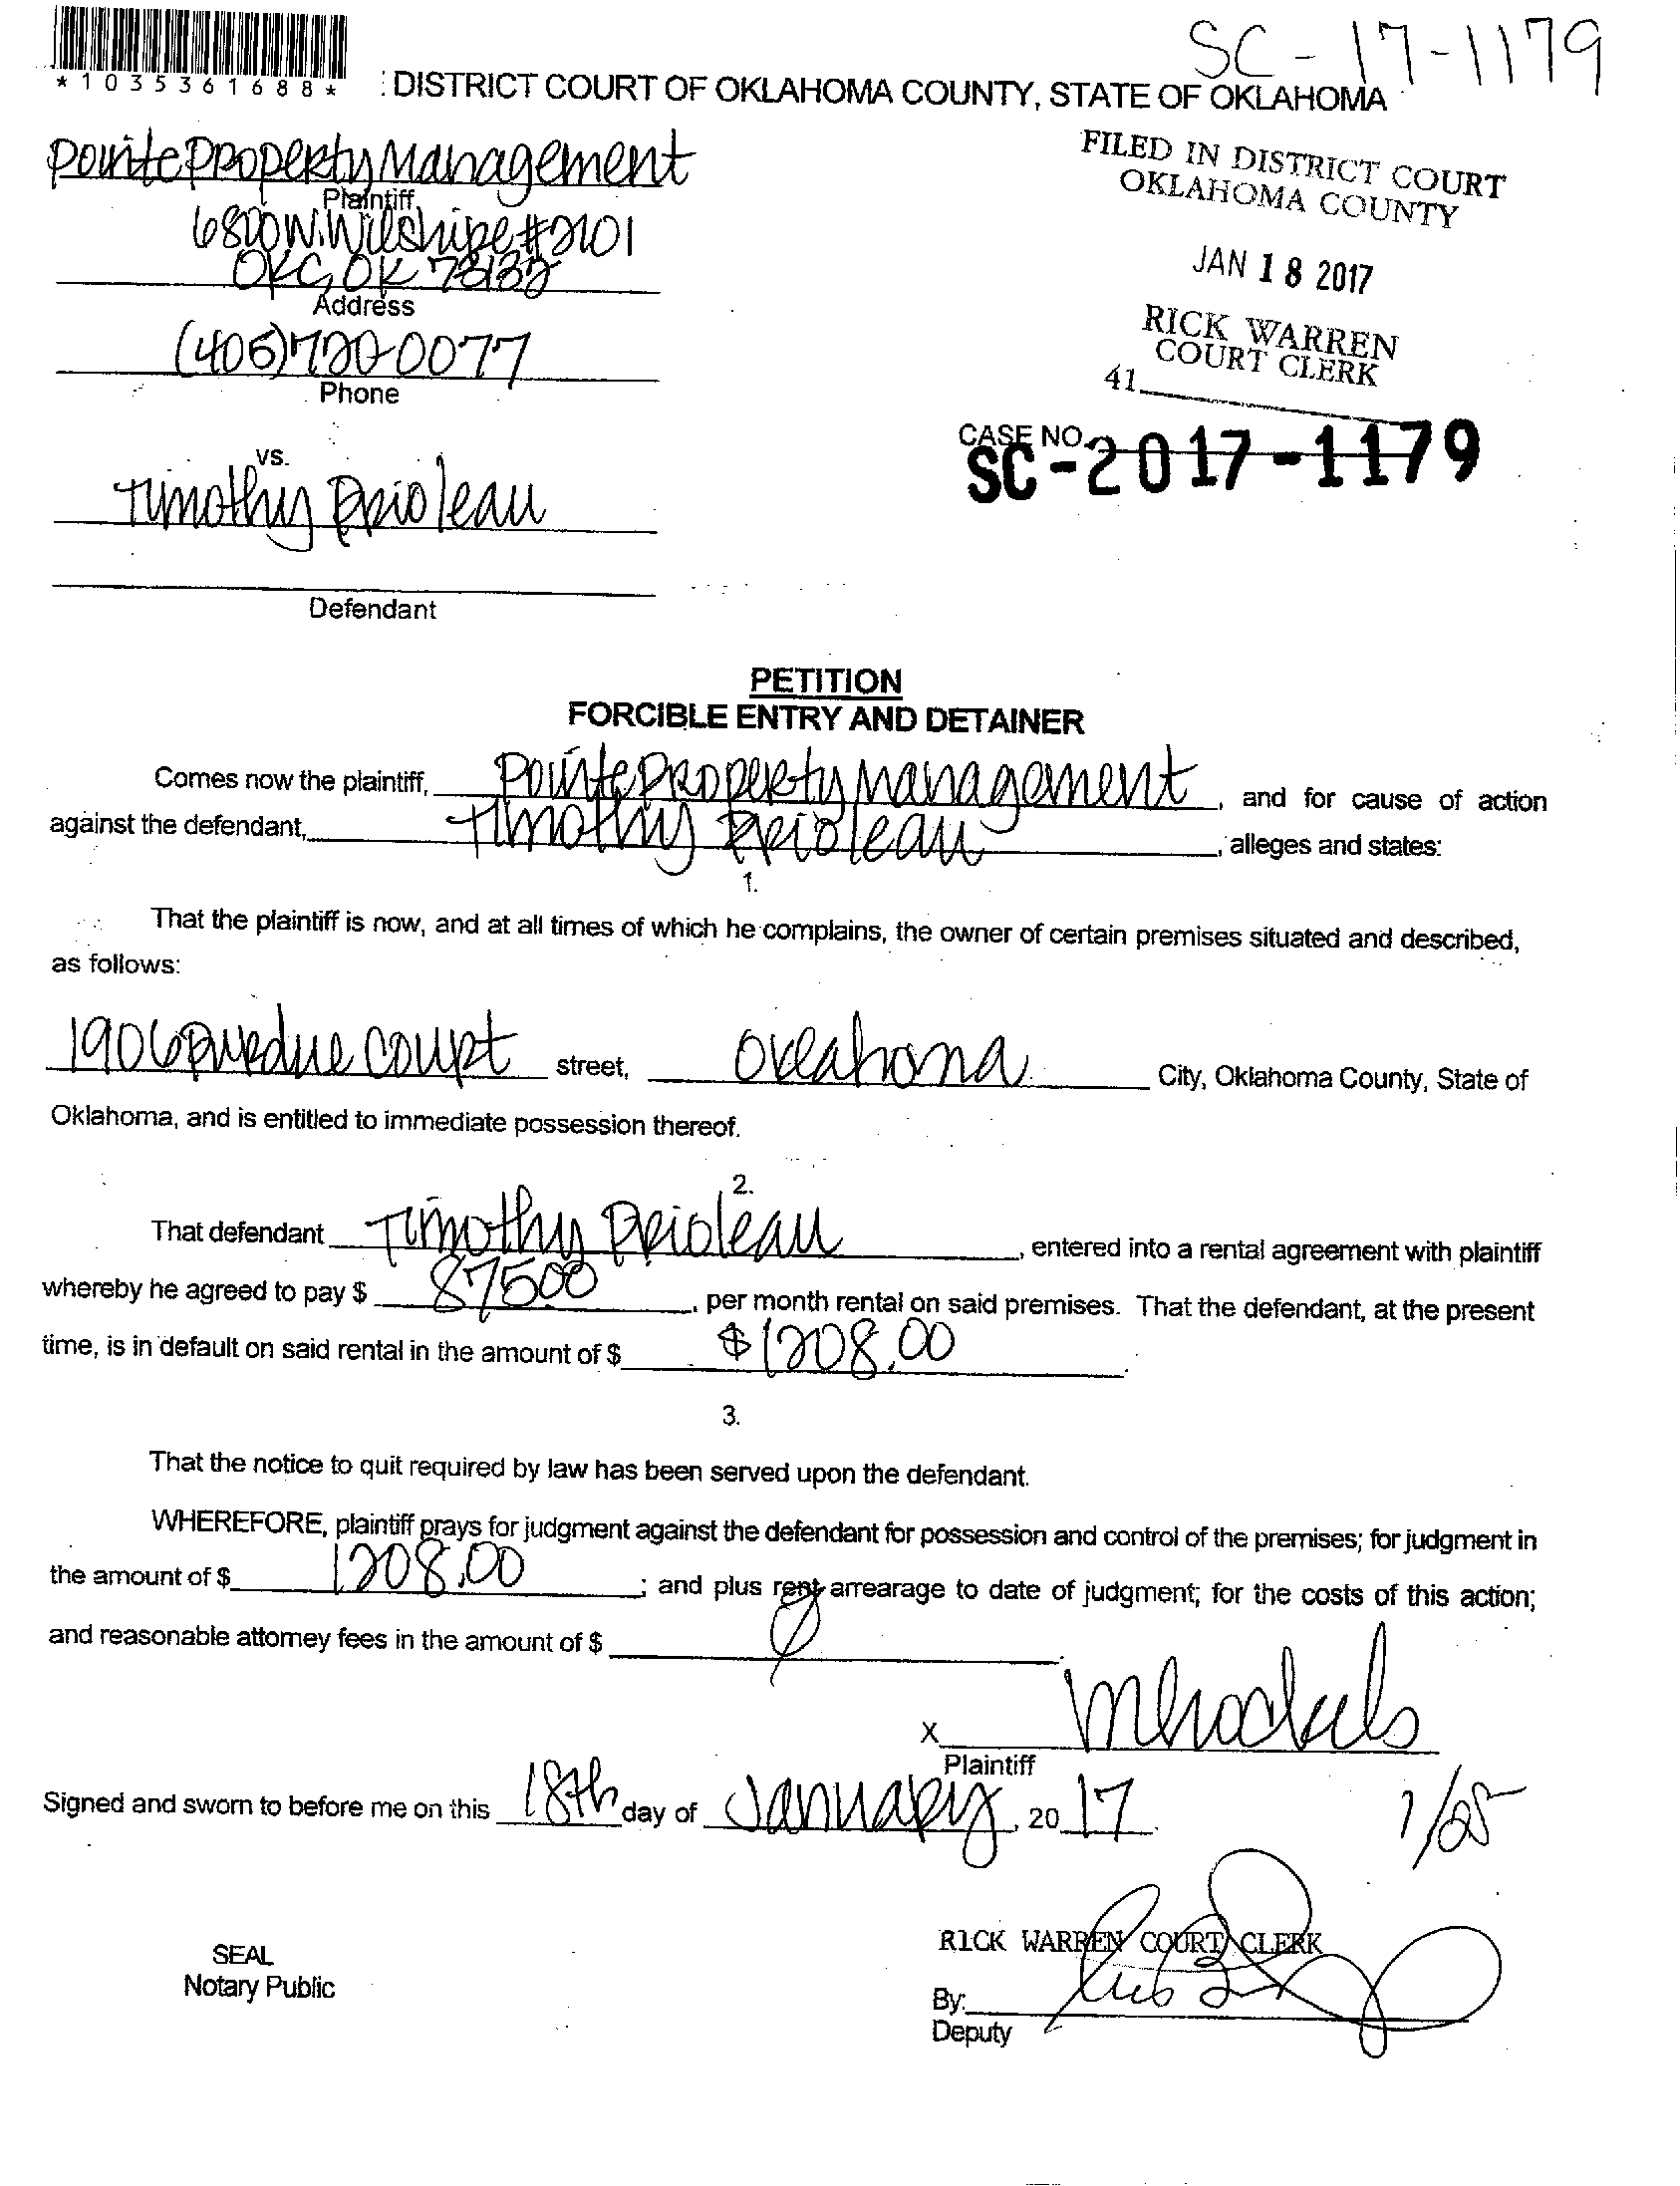 SC-17-1179
*1035361688*
: DISTRICT COURT OF OKLAHOMA COUNTY, STATE OF OKLAHOMA
Pointe Property Management
Plaintiff
6800 W. Wilshire #2101
OKC, OK 73132
Address
(405)720-0077
Phone
FILED IN DISTRICT COURT
OKLAHOMA COUNTY
JAN 18 2017
RICK WARREN
COURT CLERK
41
CASE NO.
SC-2017-1179
vs.
Timothy Prioleau
Defendant
PETITION
FORCIBLE ENTRY AND DETAINER
Comes now the plaintiff, Pointe Property Management, and for cause of action
against the defendant, Timothy Prioleau, alleges and states:
1.
That the plaintiff is now, and at all times of which he complains, the owner of certain premises situated and described,
as follows:
1906 Purdue Court street, Oklahoma City, Oklahoma County, State of
Oklahoma, and is entitled to immediate possession thereof.
2.
That defendant Timothy Prioleau, entered into a rental agreement with plaintiff
whereby he agreed to pay $ 87500, per month rental on said premises. That the defendant, at the present
time, is in default on said rental in the amount of $ $1208.00.
3.
That the notice to quit required by law has been served upon the defendant.
WHEREFORE, plaintiff prays for judgment against the defendant for possession and control of the premises; for judgment in
the amount of $ 1208.00; and plus rent arrearage to date of judgment; for the costs of this action;
and reasonable attorney fees in the amount of $ 0.
X
Plaintiff
Signed and sworn to before me on this 18th day of January, 2017.
1/25
SEAL
Notary Public
RICK WARREN COURT CLERK
By:
Deputy